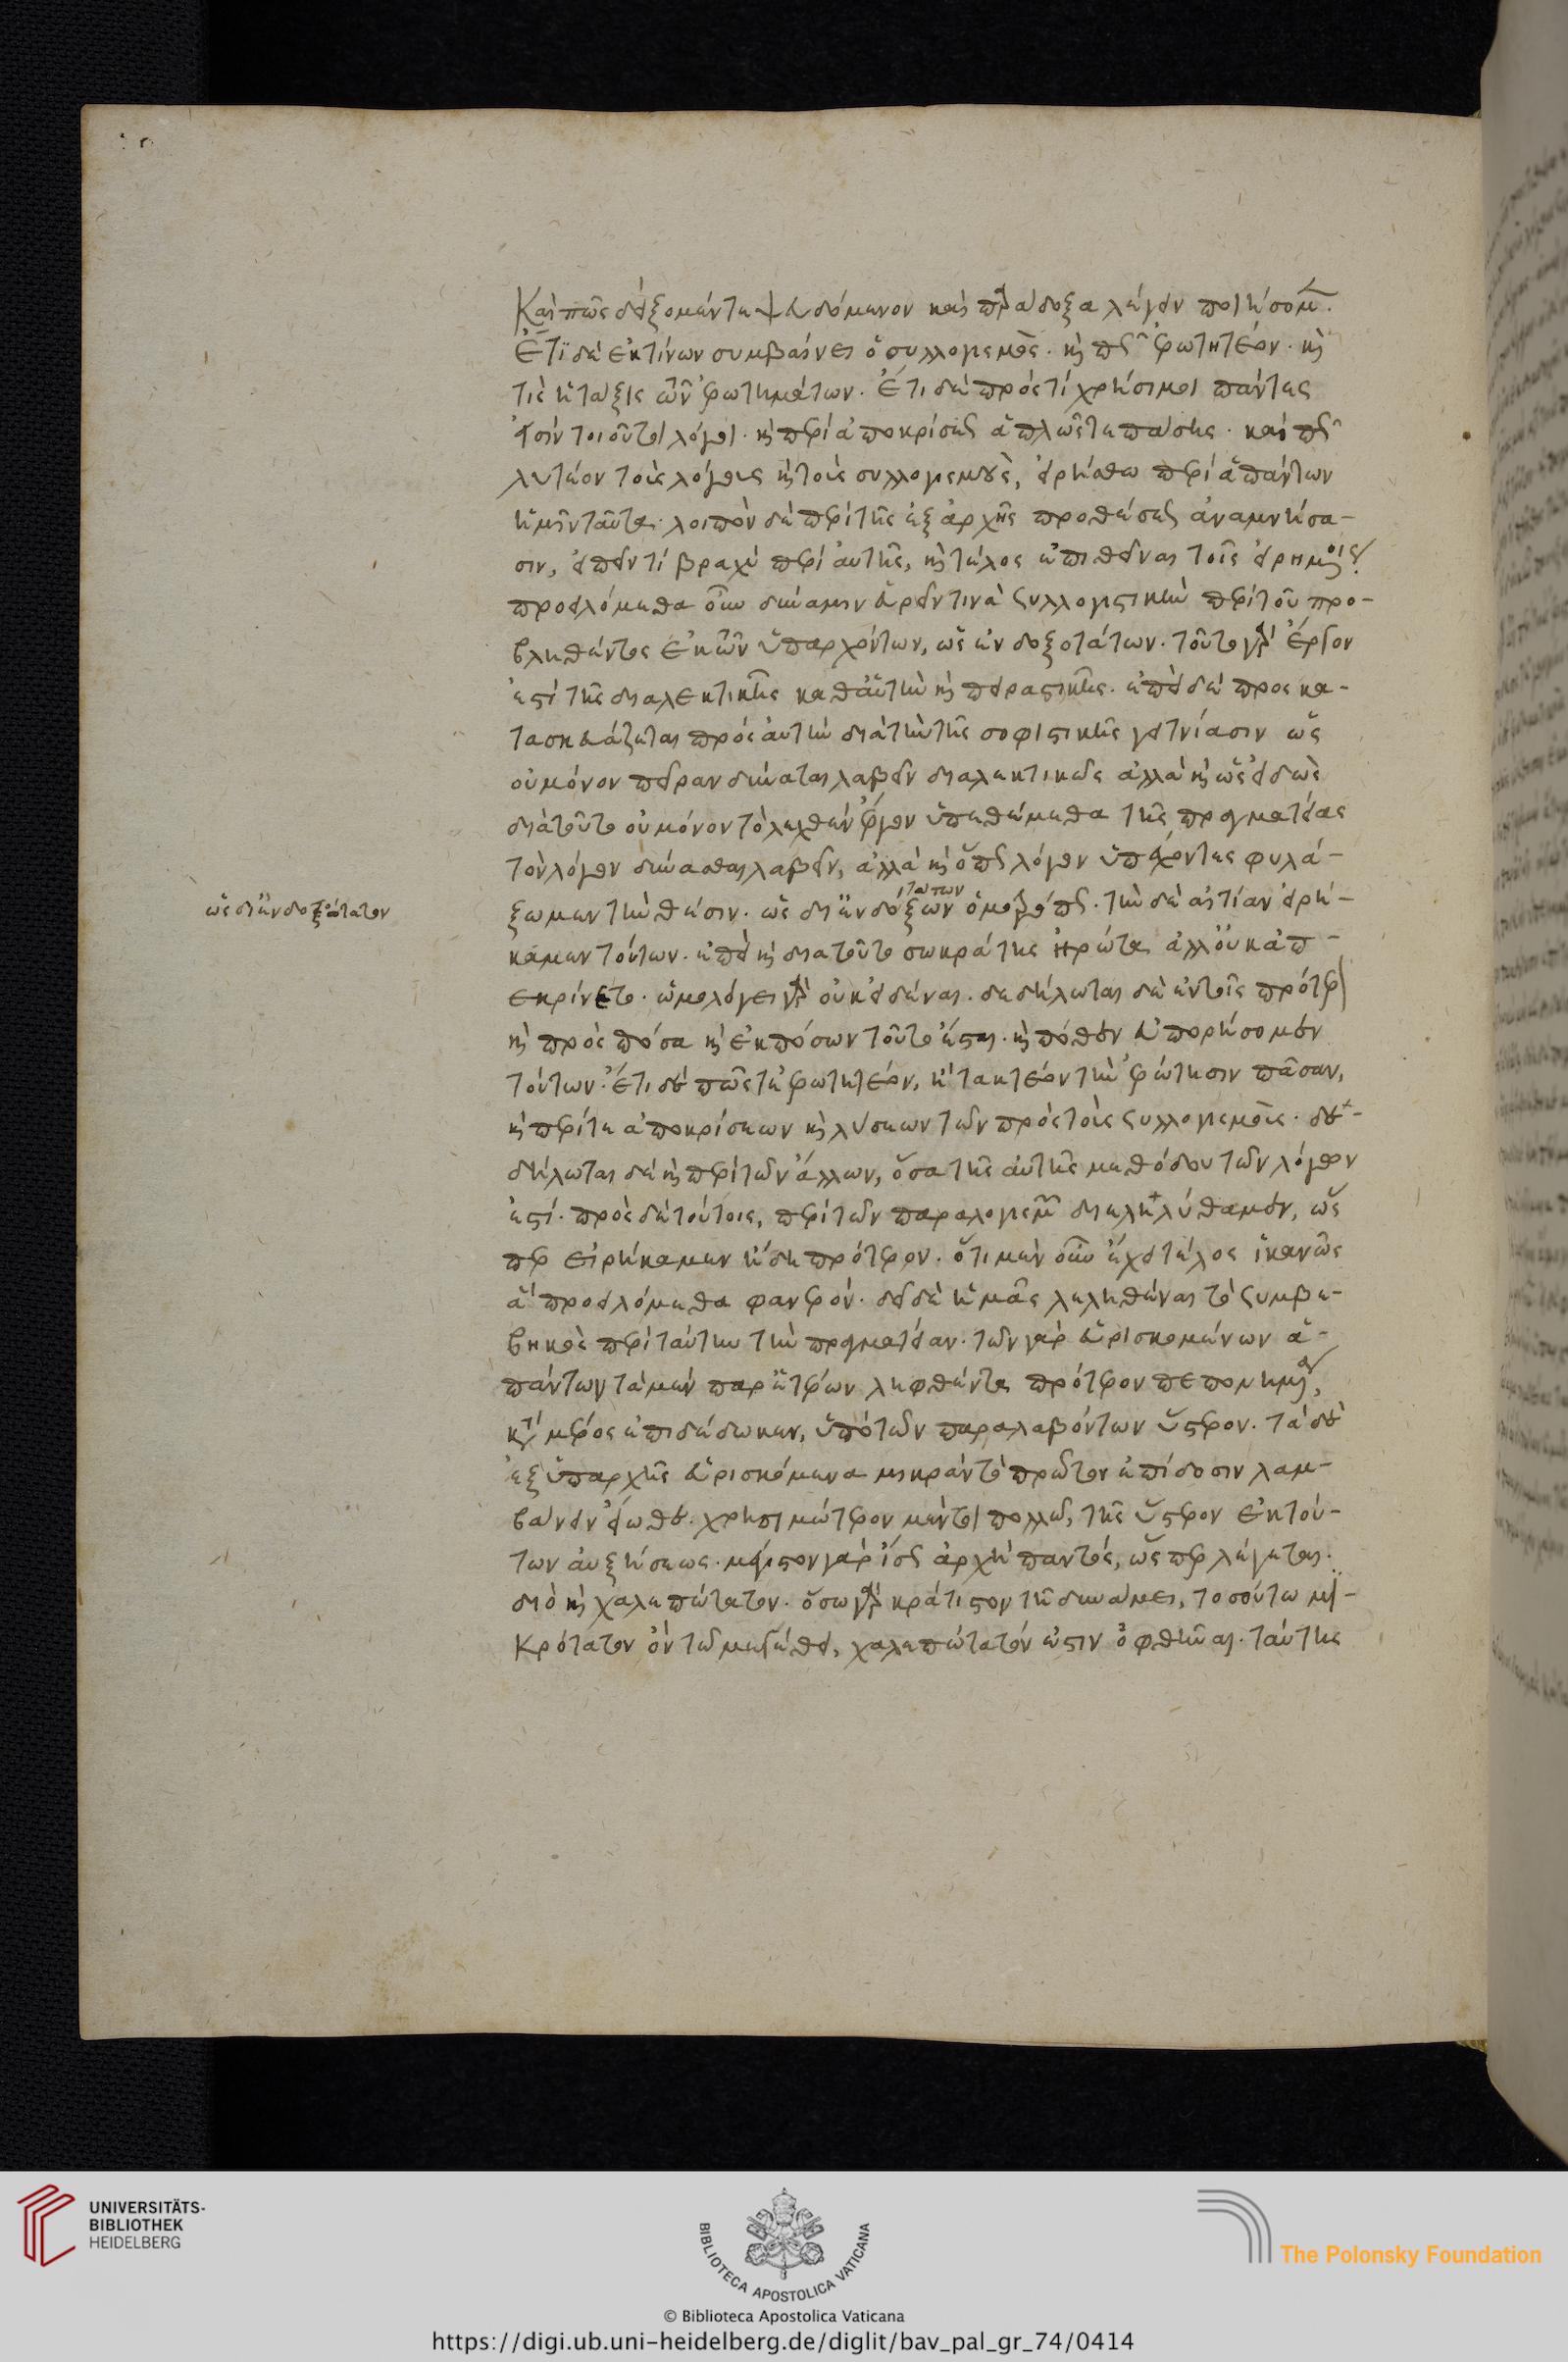 Καὶ πῶς δείξομέν τε ψευδόμενον καὶ παράδοξα λέγειν ποιήσομεν.
Ἔτι δὲ ἐκ τίνων συμβαίνει ὁ συλλογισμὸς. καὶ πῶς ἐρωτητέον. καὶ
τίς ἡ τάξις τῶν ἐρωτημάτων. Ἔτι δὲ πρὸς τί χρήσιμοι πάντες
εἰσίν οἱ τοιοῦτοι λόγοι. καὶ περὶ ἀποκρίσεως ἁπλῶς τε πάσης. καὶ πῶς
λυτέον τοὺς λόγους καὶ τοὺς συλλογισμοὺς, εἰρήσθω περὶ ἁπάντων
ἡμῖν ταῦτα. λοιπὸν δὲ περὶ τῆς ἐξ ἀρχῆς προθέσεως ἀναμνήσα-
σιν, εἰπεῖν τί βραχὺ περὶ αὐτῆς, καὶ τέλος ἐπιθεῖναι τοῖς εἰρημένοις
προειλόμεθα οὖν δύναμιν εὑρεῖν τινὰ συλλογιστικὴν περὶ τοῦ προ-
βληθέντος ἐκ τῶν ὑπαρχόντων, ὡς ἐνδοξοτάτων. τοῦτο γὰρ ἔργον
ἐστὶ τῆς διαλεκτικῆς καθ' αὑτὴν καὶ πειραστικῆς. ἐπεὶ δὲ προσκα-
τασκευάζεται πρὸς αὐτὴν διὰ τὴν τῆς σοφιστικῆς γειτνίασιν ὡς
οὐ μόνον πεῖραν δύναται λαβεῖν διαλεκτικῶς ἀλλὰ καὶ ὡς εἰδὼς
διὰ τοῦτο οὐ μόνον τὸ λεχθὲν ἔργον ὑπεθέμεθα τῆς πραγματείας
τὸν λόγον δύνασθαι λαβεῖν, ἀλλὰ καὶ ὅπως λόγον ὑπέχοντες φυλά-
ὡς δι' ἐνδοξότατον
τάτων
ξωμεν τὴν θέσιν. ὡς δι' ἐνδόξων ὁμοτρόπως. τὴν δὲ αἰτίαν εἰρή-
καμεν τούτων. ἐπεὶ καὶ διὰ τοῦτο σωκράτης ἠρώτα ἀλλ' οὐκ ἀπ-
εκρίνετο. ὡμολόγει γὰρ οὐκ εἰδέναι. δεδήλωται δὲ ἐν τοῖς πρότερον
καὶ πρὸς πόσα καὶ ἐκ πόσων τοῦτο ἔσται. καὶ πόθεν εὐπορήσομεν
τούτων. Ἔτι δὲ πῶς τε ἐρωτητέον, ἢ τακτέον τὴν ἐρώτησιν πᾶσαν,
καὶ περὶ τε ἀποκρίσεων καὶ λύσεων τῶν πρὸς τοὺς συλλογισμοὺς. δε-
δήλωται δὲ καὶ περὶ τῶν ἄλλων, ὅσα τῆς αὐτῆς μεθόδου τῶν λόγων
ἐστί. πρὸς δὲ τούτοις, περὶ τῶν παραλογισμῶν διεληλύθαμεν, ὥς
περ εἰρήκαμεν ἤδη πρότερον. ὅτι μὲν οὖν ἔχει τέλος ἱκανῶς
ἃ προειλόμεθα φανερόν. δεῖ δὲ ἡμᾶς λεληθέναι τὸ συμβε-
βηκὸς περὶ ταύτην τὴν πραγματείαν. τῶν γὰρ εὑρισκομένων ἁ-
πάντων τὰ μὲν παρ' ἑτέρων ληφθέντα πρότερον πεπονημένα,
κατὰ μέρος ἐπιδέδωκεν, ὑπὸ τῶν παραλαβόντων ὕστερον. τὰ δὲ
ἐξ ὑπαρχῆς εὑρισκόμενα μικρὰν τὸ πρῶτον ἐπίδοσιν λαμ-
βάνειν εἴωθε. χρησιμώτερον μέντοι πολλῶ, τῆς ὕστερον ἐκ τού-
των αὐξήσεως. μέγιστον γὰρ ἴσως ἀρχὴ παντός, ὥς περ λέγεται.
διὸ καὶ χαλεπώτατον. ὅσω γὰρ κράτιστον τῆ δυνάμει, τοσούτω μι-
κρότατον ὂν τῶ μεγέθει, χαλεπώτατόν ἐστιν ὀφθῆναι. ταύτης
UNIVERSITÄTS-
BIBLIOTHEK
HEIDELBERG
BIBLIOTECA APOSTOLICA VATICANA
The Polonsky Foundation
© Biblioteca Apostolica Vaticana
https://digi.ub.uni-heidelberg.de/diglit/bav_pal_gr_74/0414